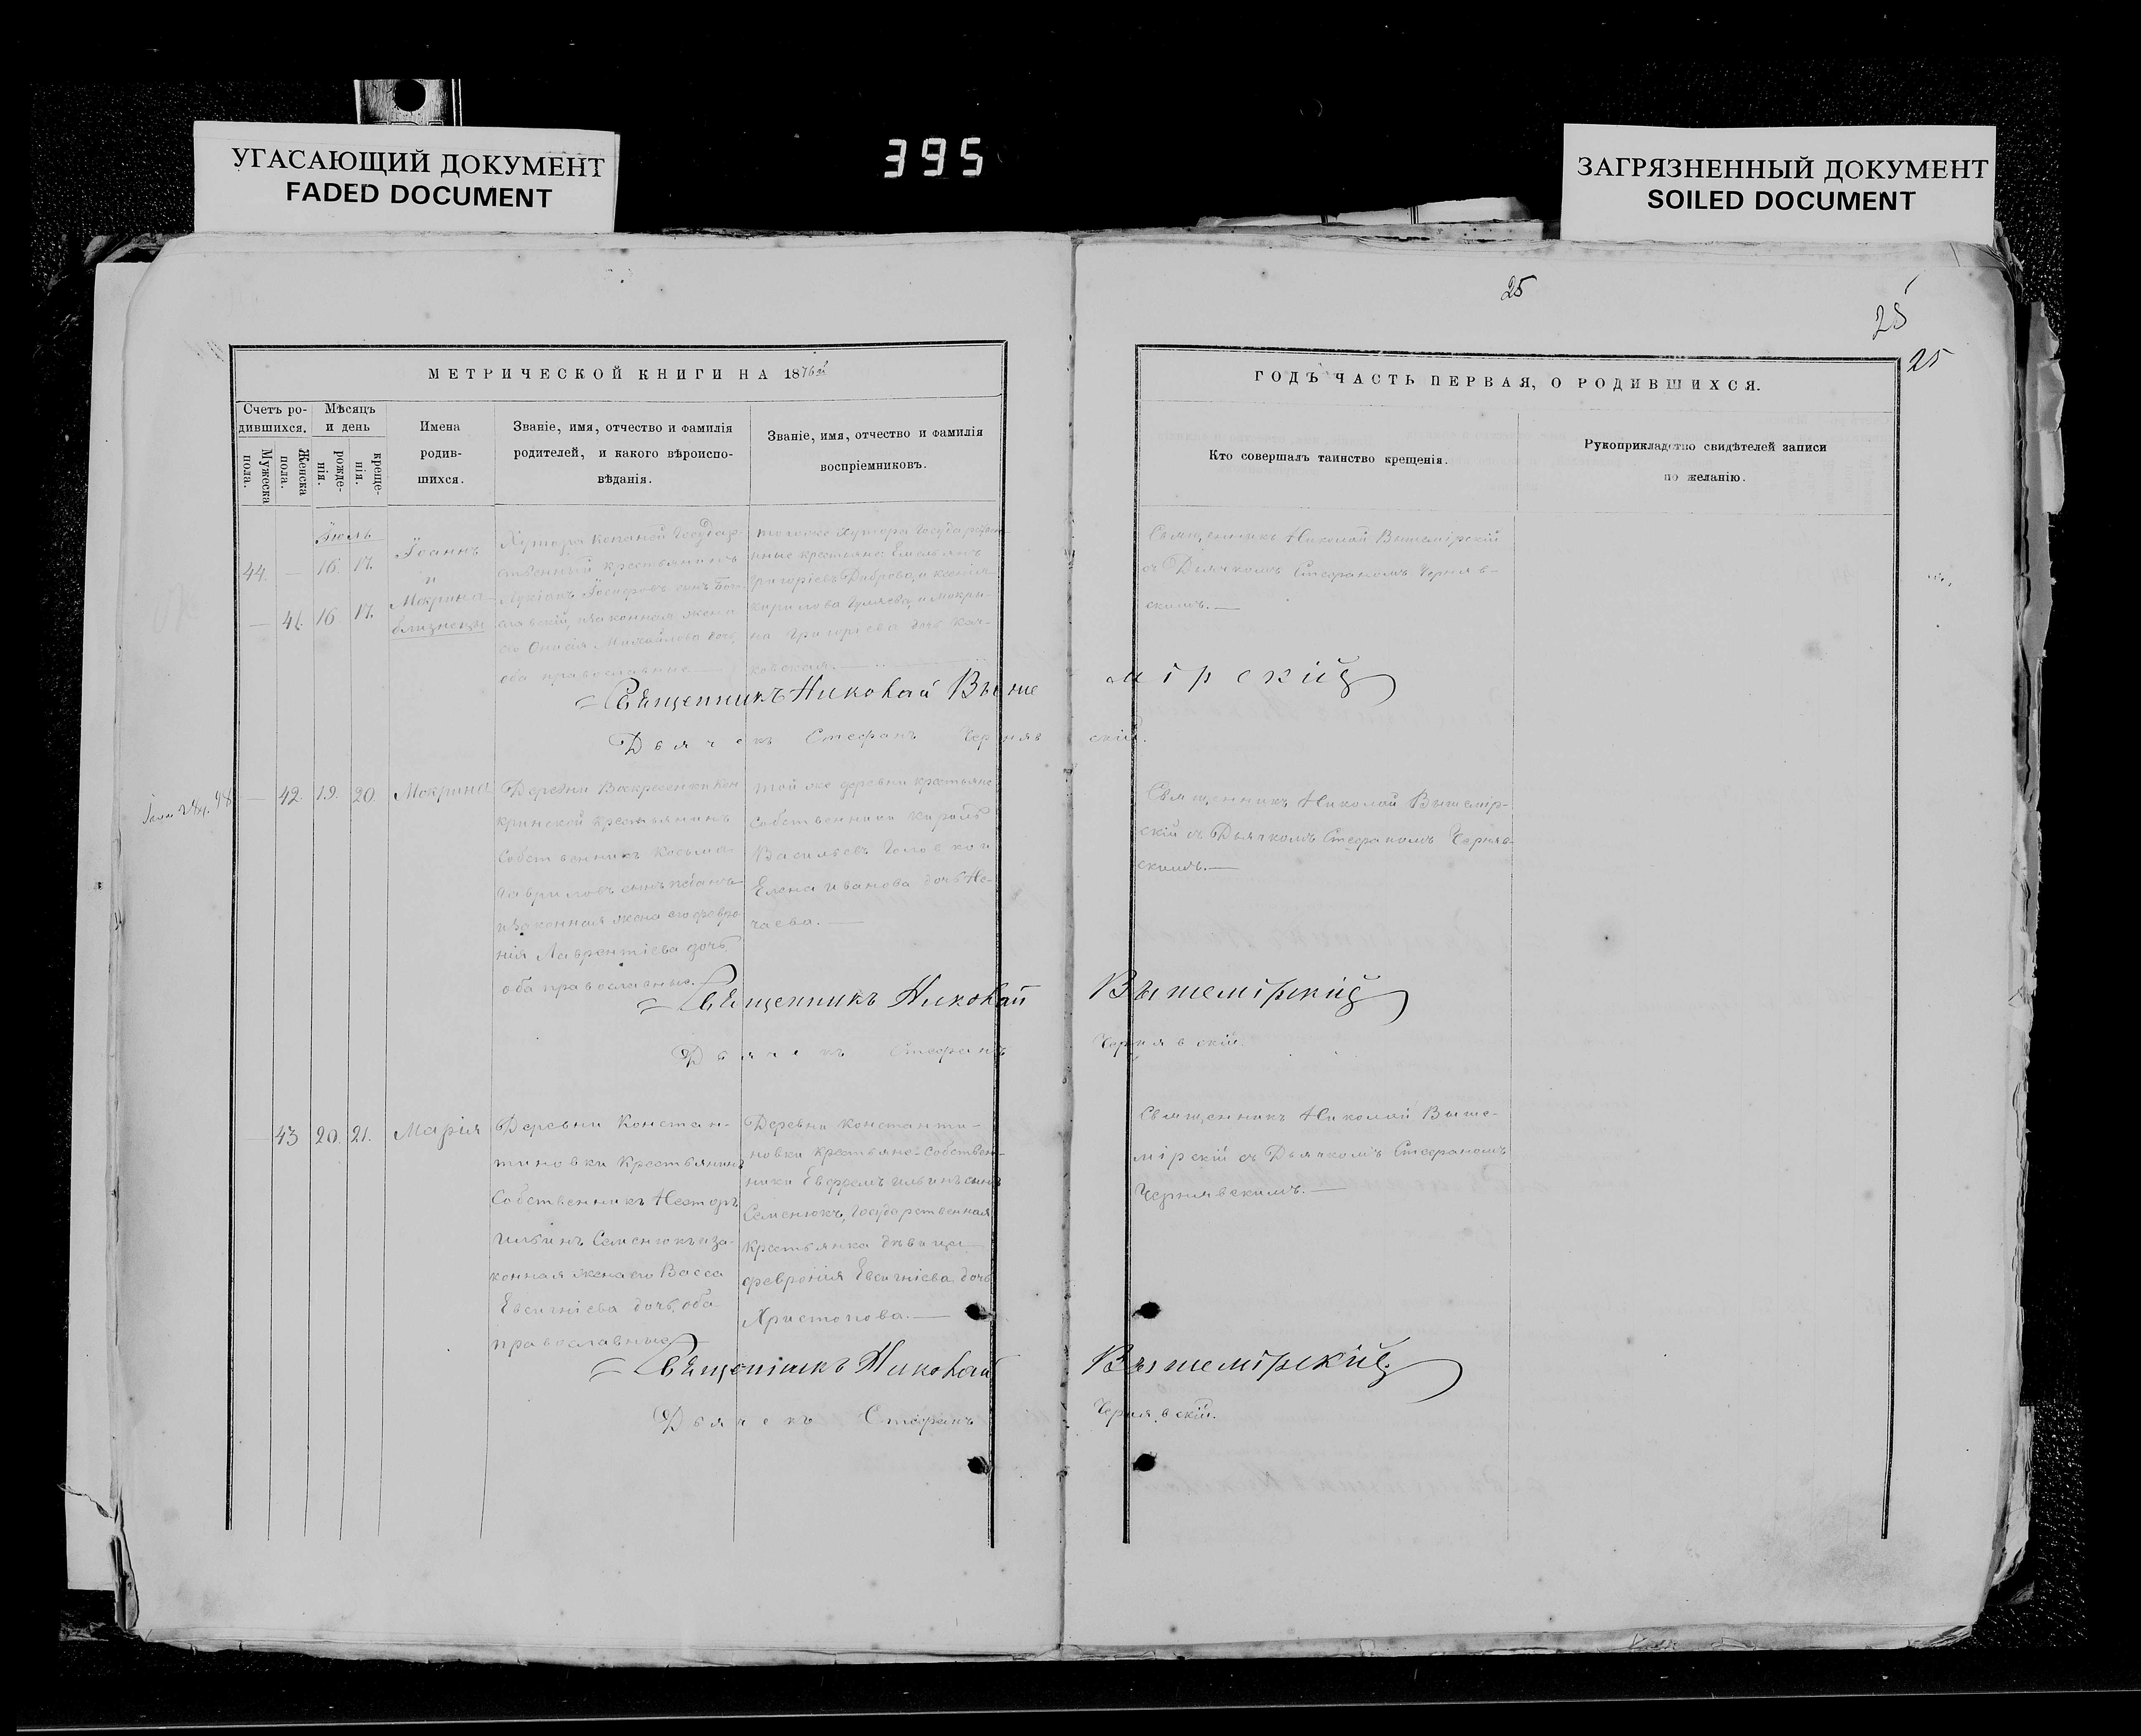 395
УГАСАЮЩИЙ ДОКУМЕНТ
FADED DOCUMENT
ЗАГРЯЗНЕННЫЙ ДОКУМЕНТ
SOILED DOCUMENT
25
25
25
МЕТРИЧЕСКОЙ КНИГИ НА 1876й
Счетъ родившихся.
Мужеска пола.
Женска пола.
Мѣсяцъ и день
рожде-
нія.
креще-
нія.
Имена
родив-
шихся.
Званіе, имя, отчество и фамилія
родителей, и какого вѣроиспо-
вѣданія.
Званіе, имя, отчество и фамилія
воспріемниковъ.
ГОДЪ ЧАСТЬ ПЕРВАЯ, О РОДИВШИХСЯ.
Кто совершалъ таинство крещенія.
Рукоприкладство свидѣтелей записи
по желанію.
Іюль
44. — 16. 17.
— 41. 16. 17.
Іоаннъ
и
Мокрина
близнецы
Хутора Копаней Государ-
ственный крестьянинъ
Іосифовъ сынъ
законная жена
его Онисія Михайлова дочь,
оба православные
тогоже Хутора Государствен-
ные крестьяне: Емельянъ
Григоріевъ Диброва, и Ксенія
Кирилова Гуляева, и Мокри-
на Григоріева дочь Кач-
ковская.—
Священникъ Николай Вышемірскій
съ Дьячкомъ Стефаномъ Черняв-
скимъ.—
Священникъ Николай Вышемірскій
Дьячекъ Стефанъ Чернявскій.
— 42. 19. 20. Мокрина
Деревни Воскресенки
кринской крестьянинъ
Собственникъ Косьма
Гавриловъ сынъ
и законная жена его Февро-
нія Лаврентіева дочь
оба православные.
Той же деревни крестьяне
собственники Кирилъ
Васильевъ и
Елена Иванова дочь Не-
чаева.—
Священникъ Николай Вышемір-
скій съ Дьячкомъ Стефаномъ Черняв-
скимъ.—
Священникъ Николай Вышемірскій
Дьячекъ Стефанъ Чернявскій.
— 43 20. 21. Марія
Деревни Констан-
тиновки Крестьянинъ
Собственникъ Несторъ
Ильинъ Семенюкъ и за-
конная жена его Васса
Евсигніева дочь, оба
православные
Деревни Константи-
новки Крестьяне-Собствен-
ники Евфремъ Ильинъ сынъ
Семенюкъ, Государственная
Крестьянка дѣвица
Февронія Евсигніева дочь
Христонова.—
Священникъ Николай Выше-
мірскій съ Дьячкомъ Стефаномъ
Чернявскимъ.—
Священникъ Николай Вышемірскій
Дьячекъ Стефанъ Чернявскій.